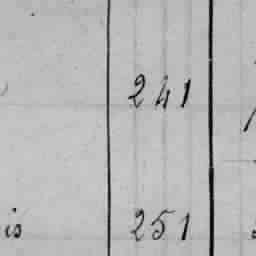 241
is 251